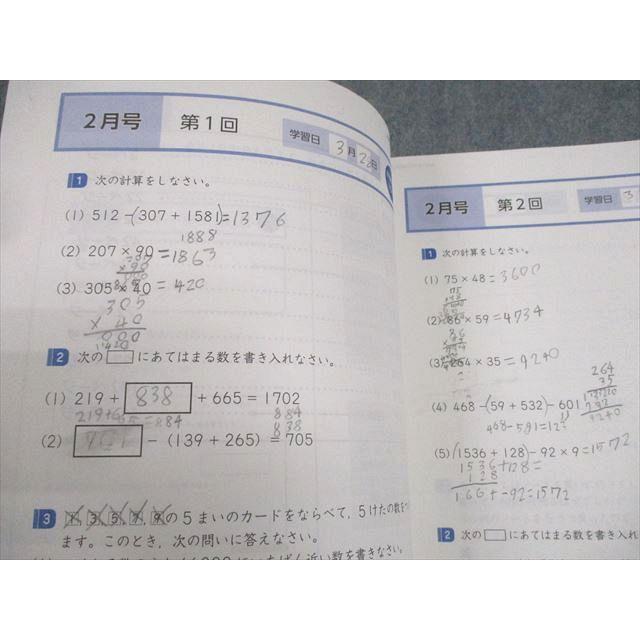 2月号 第1回 学習日 3月28日
1 次の計算をしなさい。
(1) 512-(307+1581)=1376
1888
(2) 207×90=1863
×90
(3) 305×40=420
305
×40
000
2 次の□にあてはまる数を書き入れなさい。
(1) 219+838+665=1702
219+665=884
884
838
(2) □-(139+265)=705
3 1 3 5 7 9の5まいのカードをならべて，5けたの数を
ます。このとき，次の問いに答えなさい。
2月号 第2回 学習日 3
1 次の計算をしなさい。
(1) 75×48=3600
75
(2) 86×59=4734
86
(3) 264×35=9240
264
35
9240
(4) 468-(59+532)-601
468-591=123
(5) (1536+128)-92×9=1572
1536+128=
128
166+-92=1572
2 次の□にあてはまる数を書き入れ